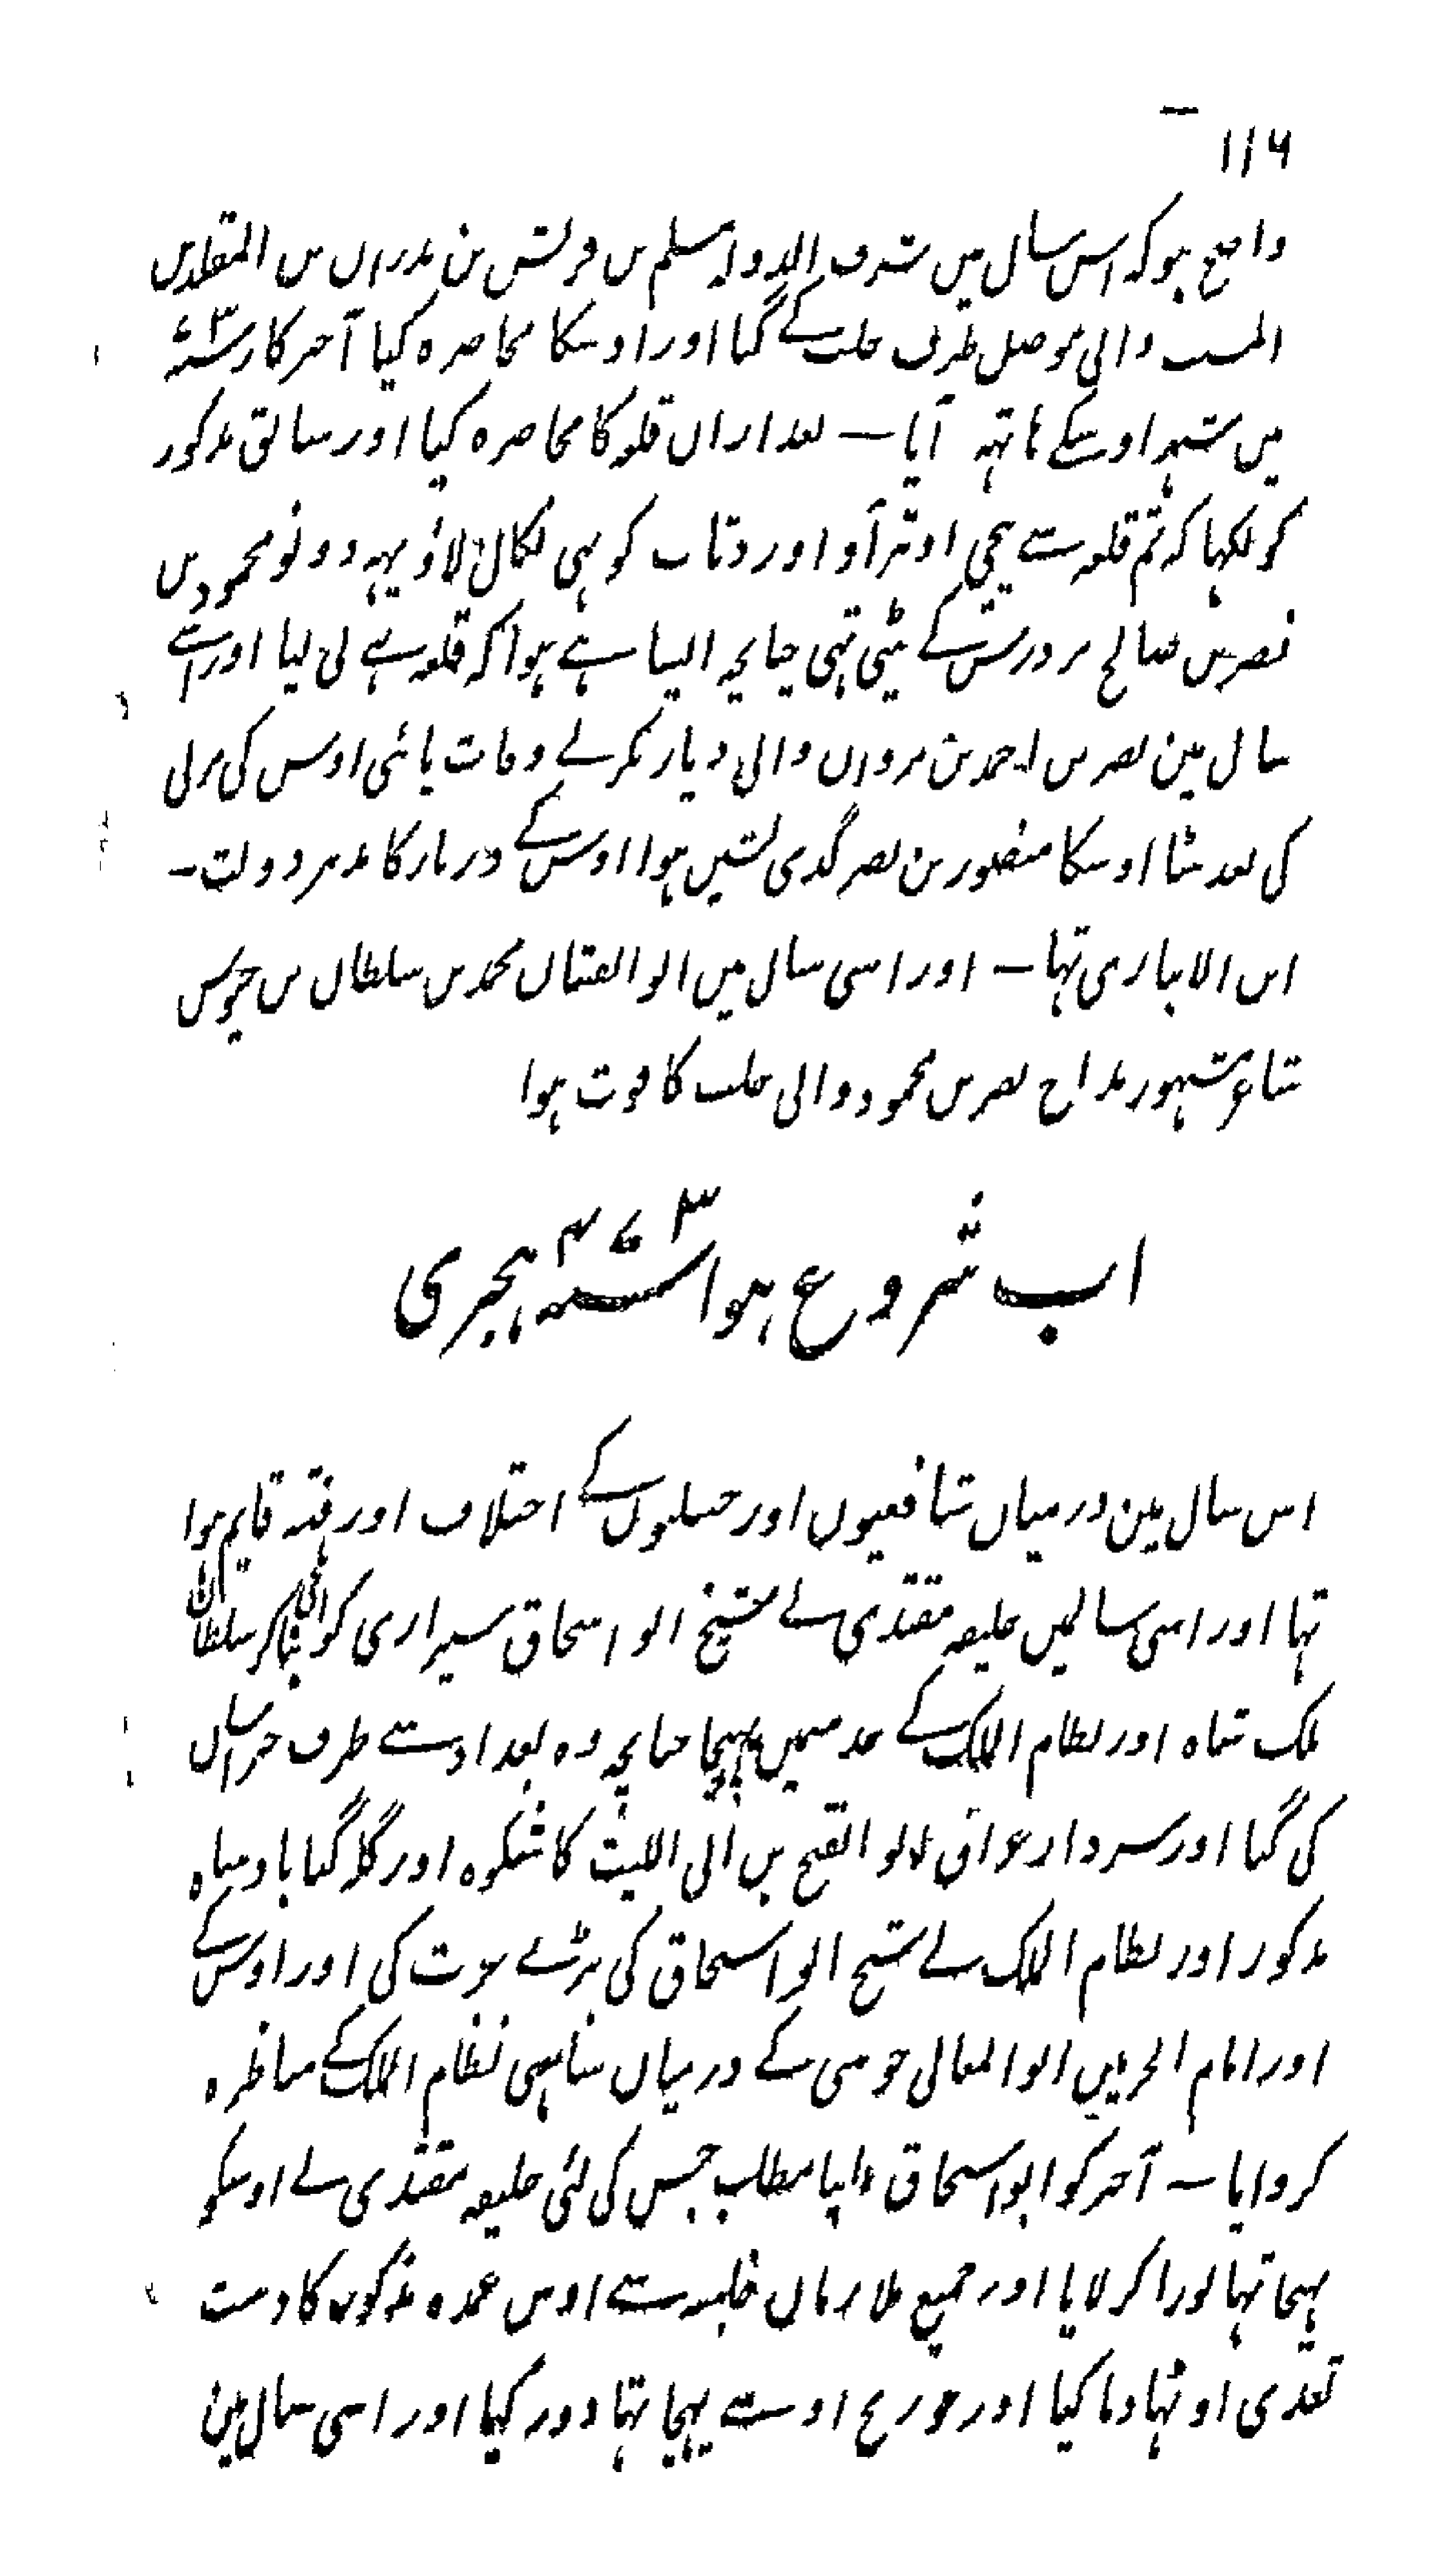 ۱۱۶
واضح ہوکہ اس سال میں شرف الدولہ مسلم بن قریش بن بدران بن المقلد بن
المسیب والی موصل طرف حلب کے گیا اور اوسکا محاصرہ کیا آخرکار سنہ ۷۳
میں شہر اوسکے ہاتہہ آیا — بعد ازاں قلعہ کا محاصرہ کیا اور سابق مذکور
کو لکہا کہ تم قلعہ سے نیچی اوتر آو اور وثاب کو بہی نکال لاؤ یہہ دونو محمود بن
نصر بن صالح بن مرداس کے بیٹی تہی چنانچہ ایسا ہے ہوا کہ قلعہ بہے لی لیا اور اسے
سال مین نصر بن احمد بن مروان والی دیار بکر نے وفات پائی اوس کی مرنی
کی بعد بیٹا اوسکا منصور بن نصر گدی نشین ہوا اوس کے دربار کا مدبر دولت —
ابن الانباری تہا — اور اسی سال میں ابو الفتیان محمد بن سلطان بن حیوس
شاعر مشہور مداح نصر بن محمود والی حلب کا فوت ہوا
اب شروع ہوا سنہ ۴۷۳ ہجری
اس سال مین درمیان شافعیوں اور حنبلیوں کے اختلاف اور فتنہ قایم ہوا
تہا اور اسی سالمیں خلیفہ مقتدی نے شیخ ابو اسحاق شیرازی کو ایلچی بناکر سلطان
ملک شاہ اور نظام الملک کے خدمتمیں بہیجا چنانچہ وہ بغداد سے طرف خراسان
کی گیا اور سردار عراق ابو الفتح بن ابی اللیث کا شکوہ اور گلہ کیا بادشاہ
مذکور اور نظام الملک نے شیخ ابو اسحاق کی بڑے عزت کی اور اوس کے
اور امام الحرمین ابو المعالی جوینی کے درمیان سامہنی نظام الملک کے مناظرہ
کروایا — آخرکو ابو اسحاق اپنا مطلب جس کی لئی خلیفہ مقتدی نے اوسکو
بہیجا تہا پورا کر لایا اور جمیع ملازمان خلیفہ سے اوس عمدہ مذکور کا دست
تعدی اوٹہا دیا گیا اور جو رنج اوسے پہنچا تہا دور کیا اور اسی سال مین